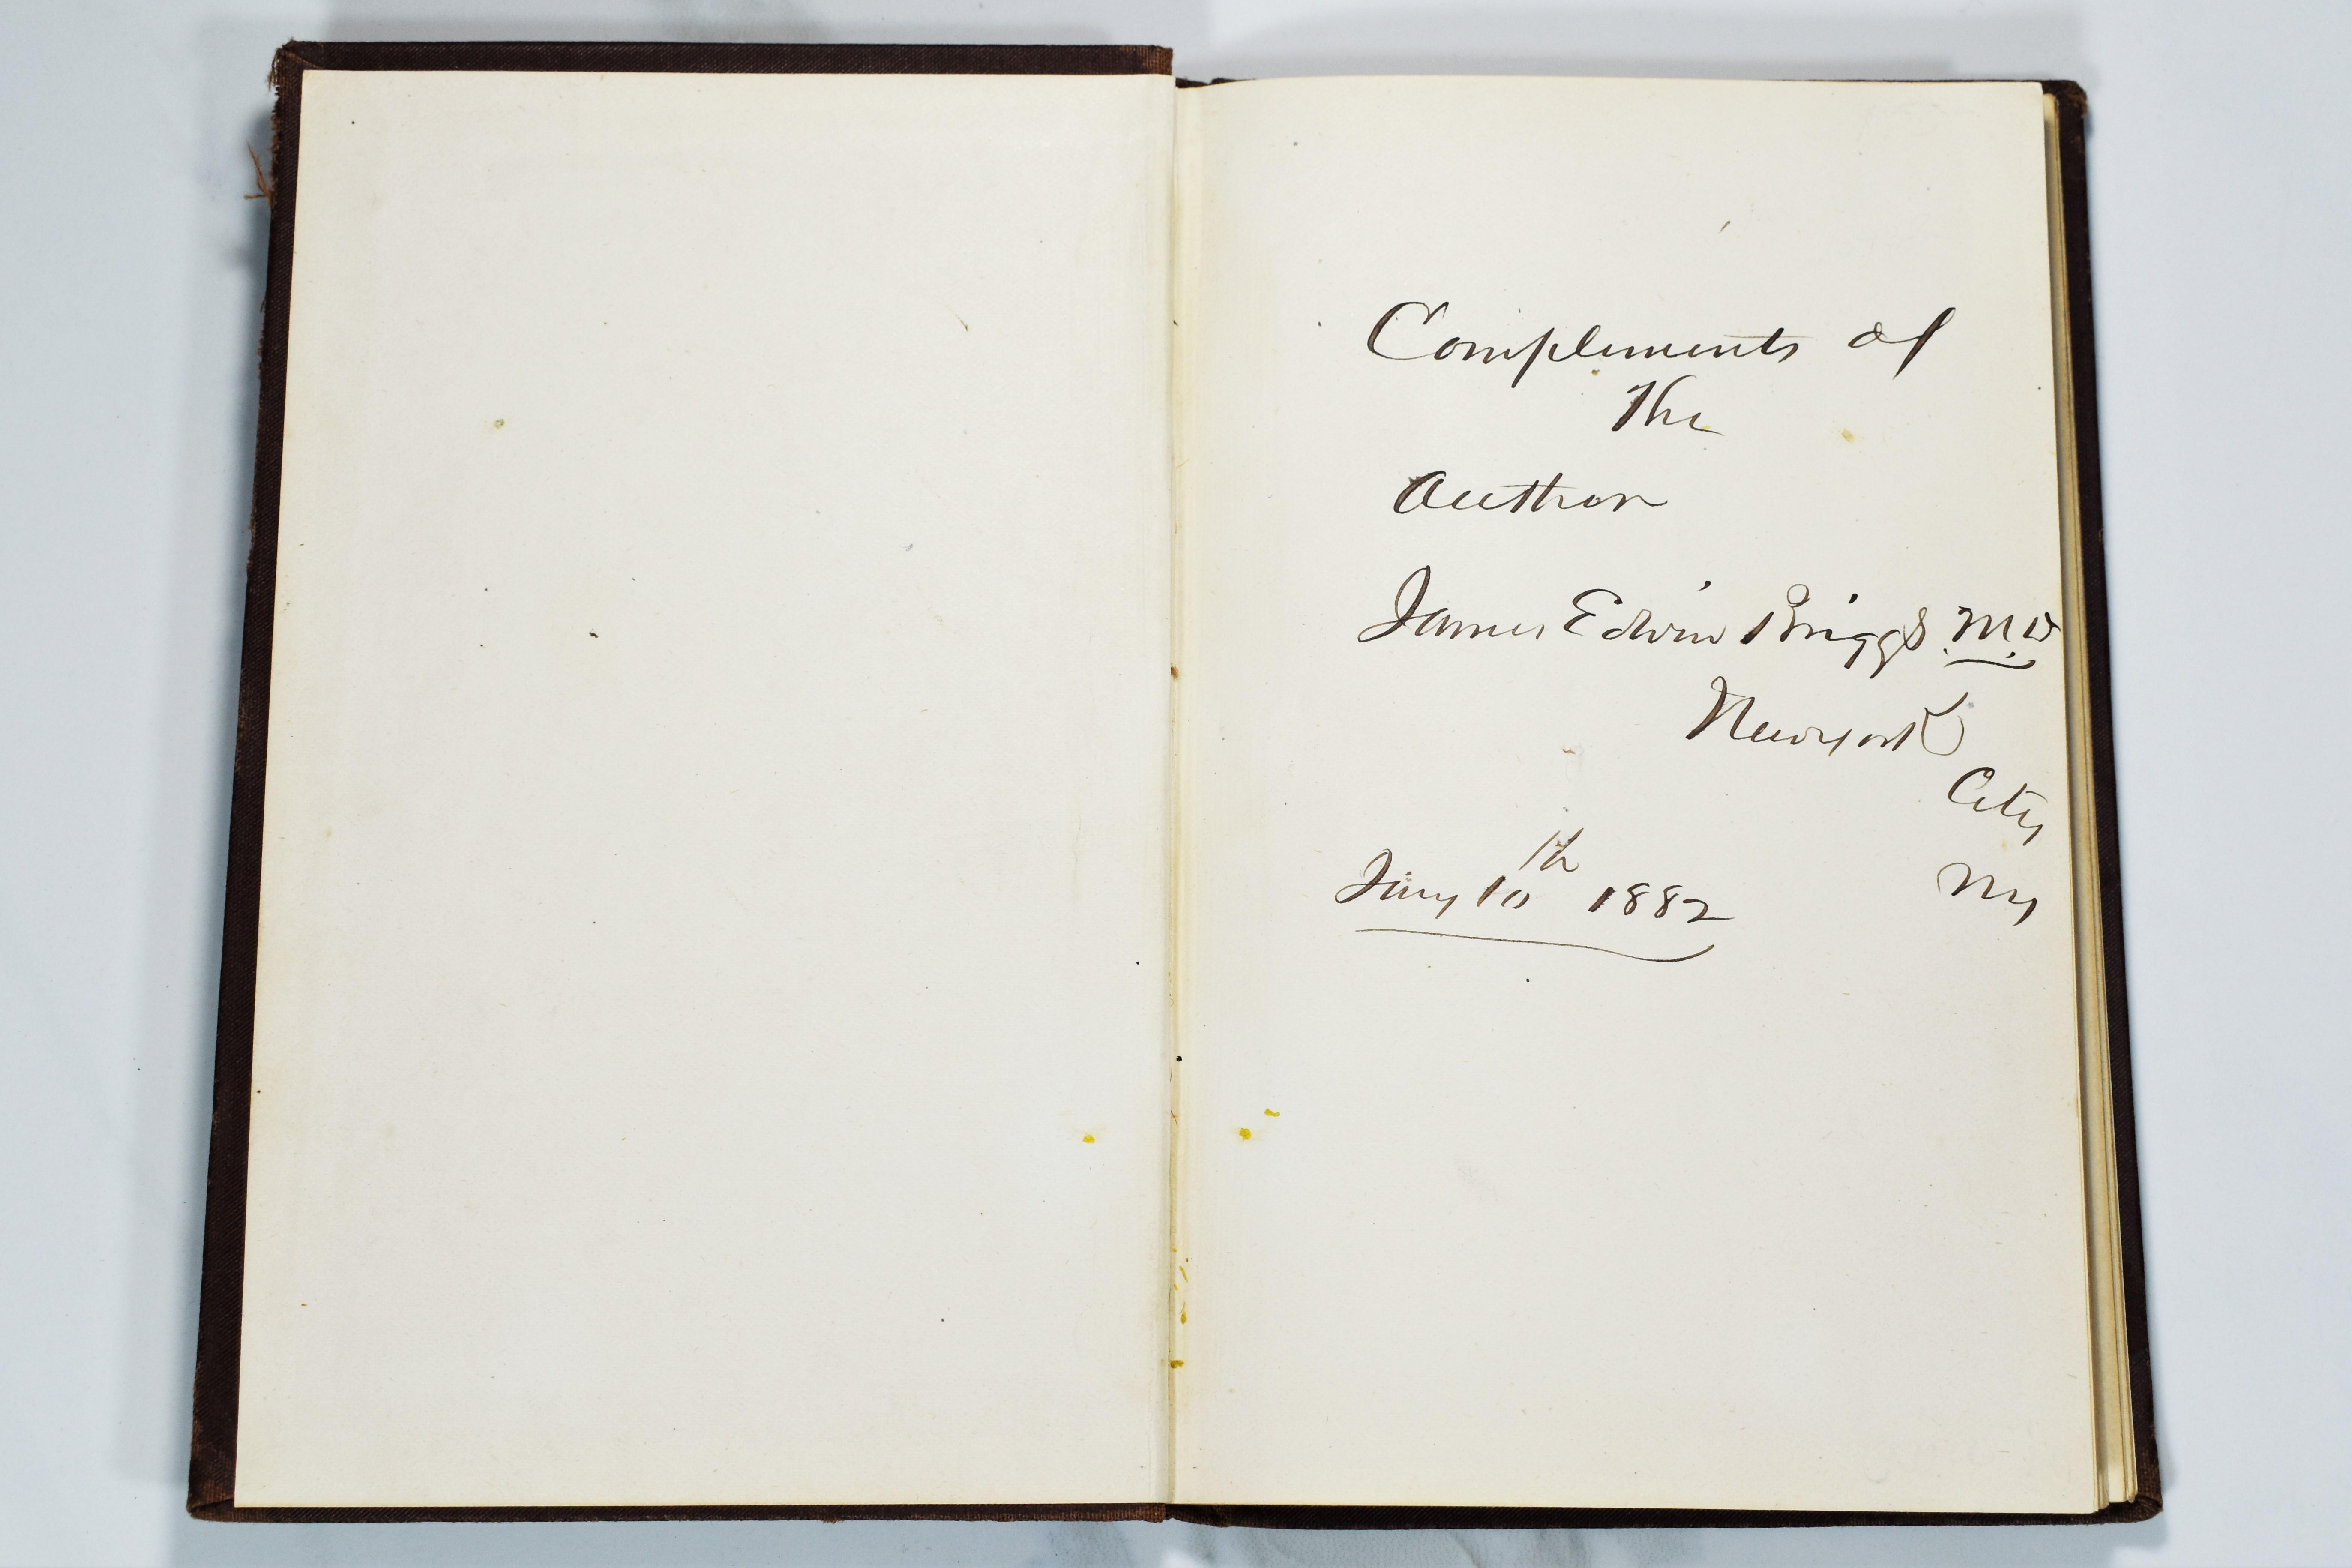 Complements of
the
Author
James Edwin Briggs M.D
New york
City
Ny
Jany 10th 1882